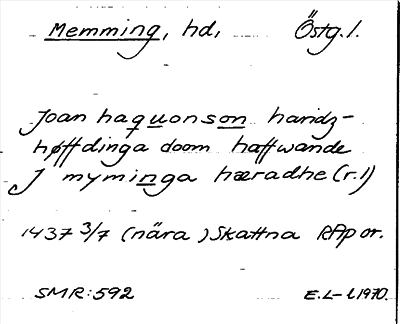 Memming, hd, Östg. l.
Joan haquonson haridz-
høffdinga doom haffwande
J myminga hæradhe (r. 1)
1437 3/7 (nära) Skattna RAp or.
SMR: 592 E.L-l 1970.